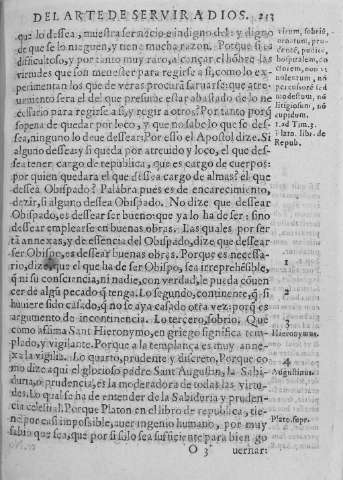 DEL ARTE DE SERVIR A DIOS. 213
que lo dessea, muestra ser necio e indigno del: y digno
de que se lo nieguen, y tiene mucha razon. Porque si es
dificultoso, y por tanto muy raro, alcançar el hõbre las
virtudes que son menester para regirse a si, como lo ex
perimentan los que de veras procurã saluarse: que atre
uimiento sera el del que presume estar abastado de lo ne
cessario para regirse a si, y regir a otros? Por tanto porq̃
so pena de quedar por loco, y que no sabe lo que se des-
sea, ninguno lo deue dessear: Por esso el Apostol dize. Si
alguno dessea: y si queda por atreuido y loco, el que des-
sea tener cargo de republica, que es cargo de cuerpos:
por quien quedara el que dessea cargo de almas? el que
dessea Obispado? Palabra pues es de encarecimiento,
dezir, si alguno dessea Obispado. No dize que dessear
Obispado, es dessear ser bueno: que ya lo ha de ser: sino
dessear emplearse en buenas obras. Las quales por ser
tã annexas, y de essencia del Obispado, dize que dessear
ser Obispo, es dessear buenas obras. Porque es necessa-
rio, dize que el que ha de ser Obispo, sea irreprehẽsible,
q̃ ni su consciencia, ni nadie, con verdad, le pueda cõuen
cer de algũ pecado q̃ tenga. Lo segundo, continente, q̃ si
huuiere sido casado, q̃ no se aya casado otra vez: porq̃ es
argumento de incontinencia. Lo tercero, sobrio. Que
como afirma Sant Hieronymo, en griego significa tem
plado, y vigilante. Porque a la templança es muy anne-
xa la vigilia. Lo quarto, prudente y discreto. Porque co
mo dize aqui el glorioso padre Sant Augustin, la Sabi-
duria, o prudencia, es la moderadora de todas las virtu-
des. Lo qual se ha de entender de la Sabiduria y pruden-
cia celestial. Porque Platon en el libro de republica, tie-
ne por casi impossible, auer ingenio humano, por muy
sabio que sea, que por si solo sea suficiente para bien go
O 3 uernar:
virum, sobriũ,
ornatum, pru-
dentẽ, pudicũ,
hospitalem, do
ctorem, non vi
nolentum, nõ
percussorẽ sed
modestum, nõ
litigiosum, nõ
cupidum.
1. ad Tim. 3.
Plato. lib. de
Repub.
1
2
3
Hieronymus.
4
Augustinus.
Plato. supr.